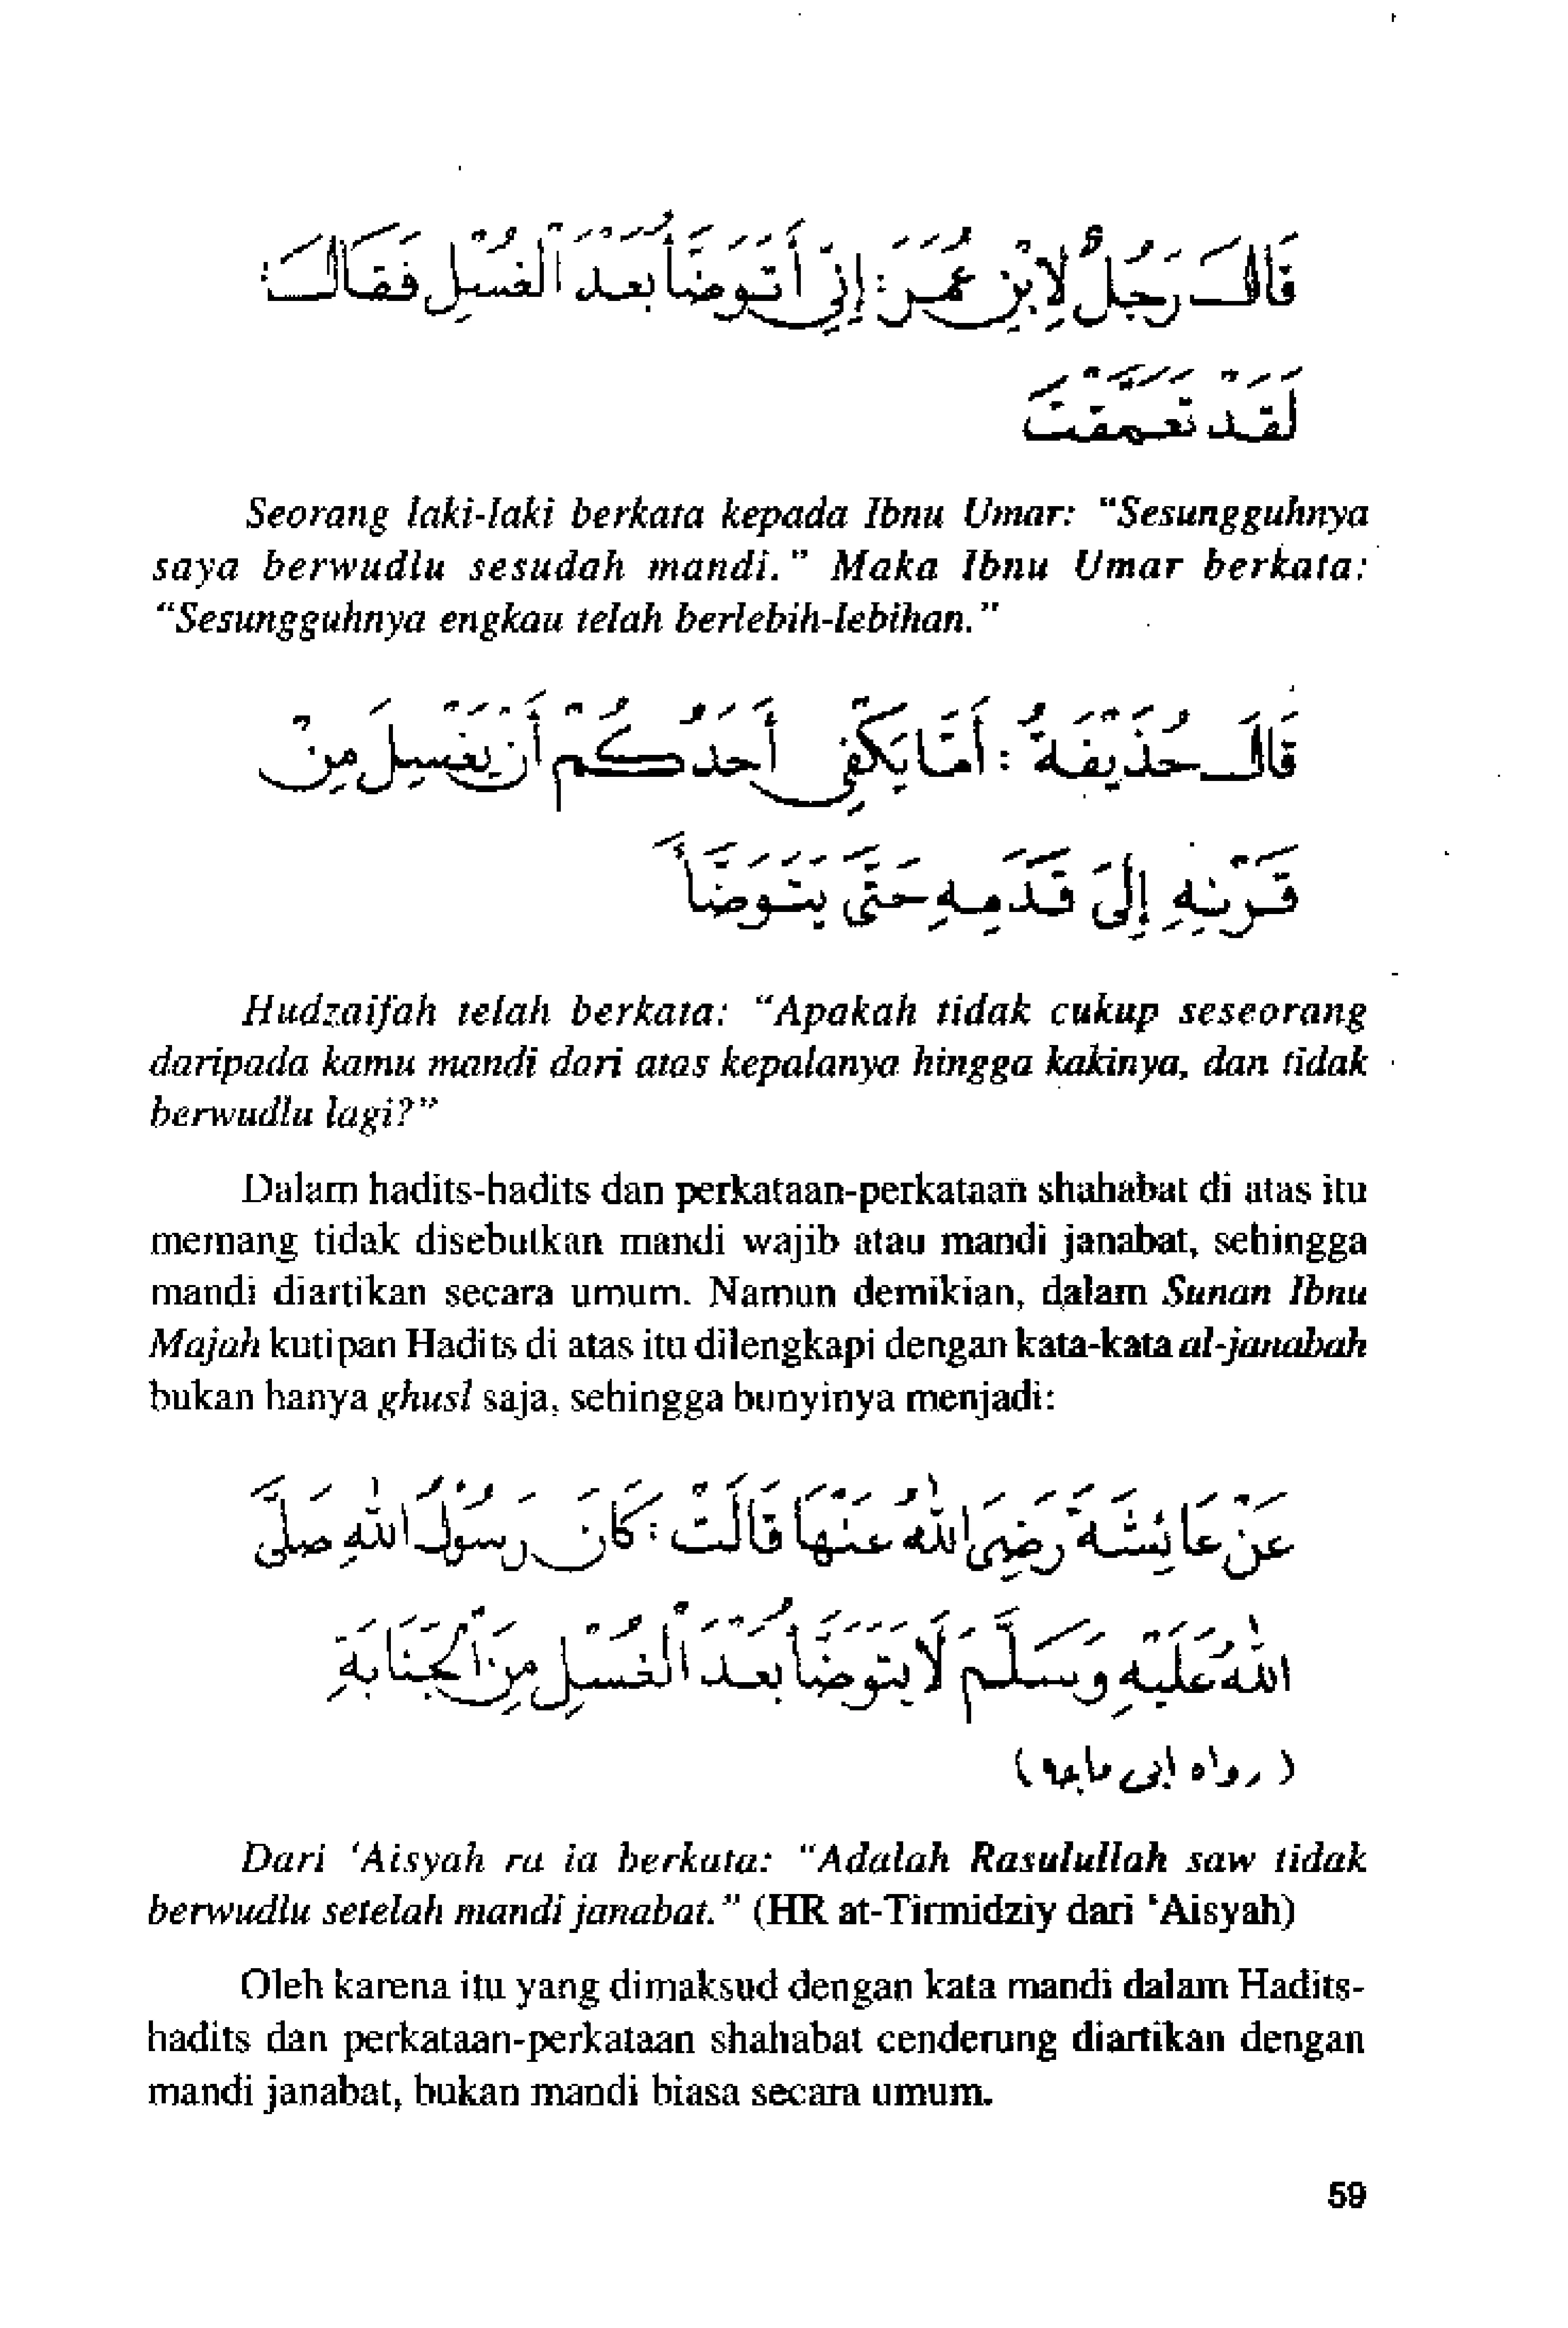 قَالَ رَجُلٌ لِابْنِ عُمَرَ: إِنِّي أَتَوَضَّأُ بَعْدَ الْغُسْلِ فَقَالَ:
لَقَدْ تَعَمَّقْتَ
Seorang laki-laki berkata kepada Ibnu Umar: "Sesungguhnya
saya berwudlu sesudah mandi." Maka Ibnu Umar berkata:
"Sesungguhnya engkau telah berlebih-lebihan."
قَالَ حُذَيْفَةُ: أَمَّا يَكْفِى أَحَدُكُمْ أَنْ يَغْسِلَ مِنْ
قَرْنِهِ إِلَى قَدَمِهِ حَتَّى يَتَوَضَّأَ
Hudzaifah telah berkata: "Apakah tidak cukup seseorang
daripada kamu mandi dari atas kepalanya hingga kakinya, dan tidak
berwudlu lagi?"
Dalam hadits-hadits dan perkataan-perkataan shahabat di atas itu
memang tidak disebutkan mandi wajib atau mandi janabat, sehingga
mandi diartikan secara umum. Namun demikian, dalam Sunan Ibnu
Majah kutipan Hadits di atas itu dilengkapi dengan kata-kata al-janabah
bukan hanya ghusl saja, sehingga bunyinya menjadi:
عَنْ عَائِشَةَ رَضِيَ اللهُ عَنْهَا قَالَتْ: كَانَ رَسُوْلُ اللهِ صَلَّى
اللهُ عَلَيْهِ وَسَلَّمَ لَا يَتَوَضَّأُ بَعْدَ الْغُسْلِ مِنَ الْجَنَابَةِ
(رواه ابى ماجه)
Dari 'Aisyah ra ia berkata: "Adalah Rasulullah saw tidak
berwudlu setelah mandi janabat." (HR at-Tirmidziy dari 'Aisyah)
Oleh karena itu yang dimaksud dengan kata mandi dalam Hadits-
hadits dan perkataan-perkataan shahabat cenderung diartikan dengan
mandi janabat, bukan mandi biasa secara umum.
59